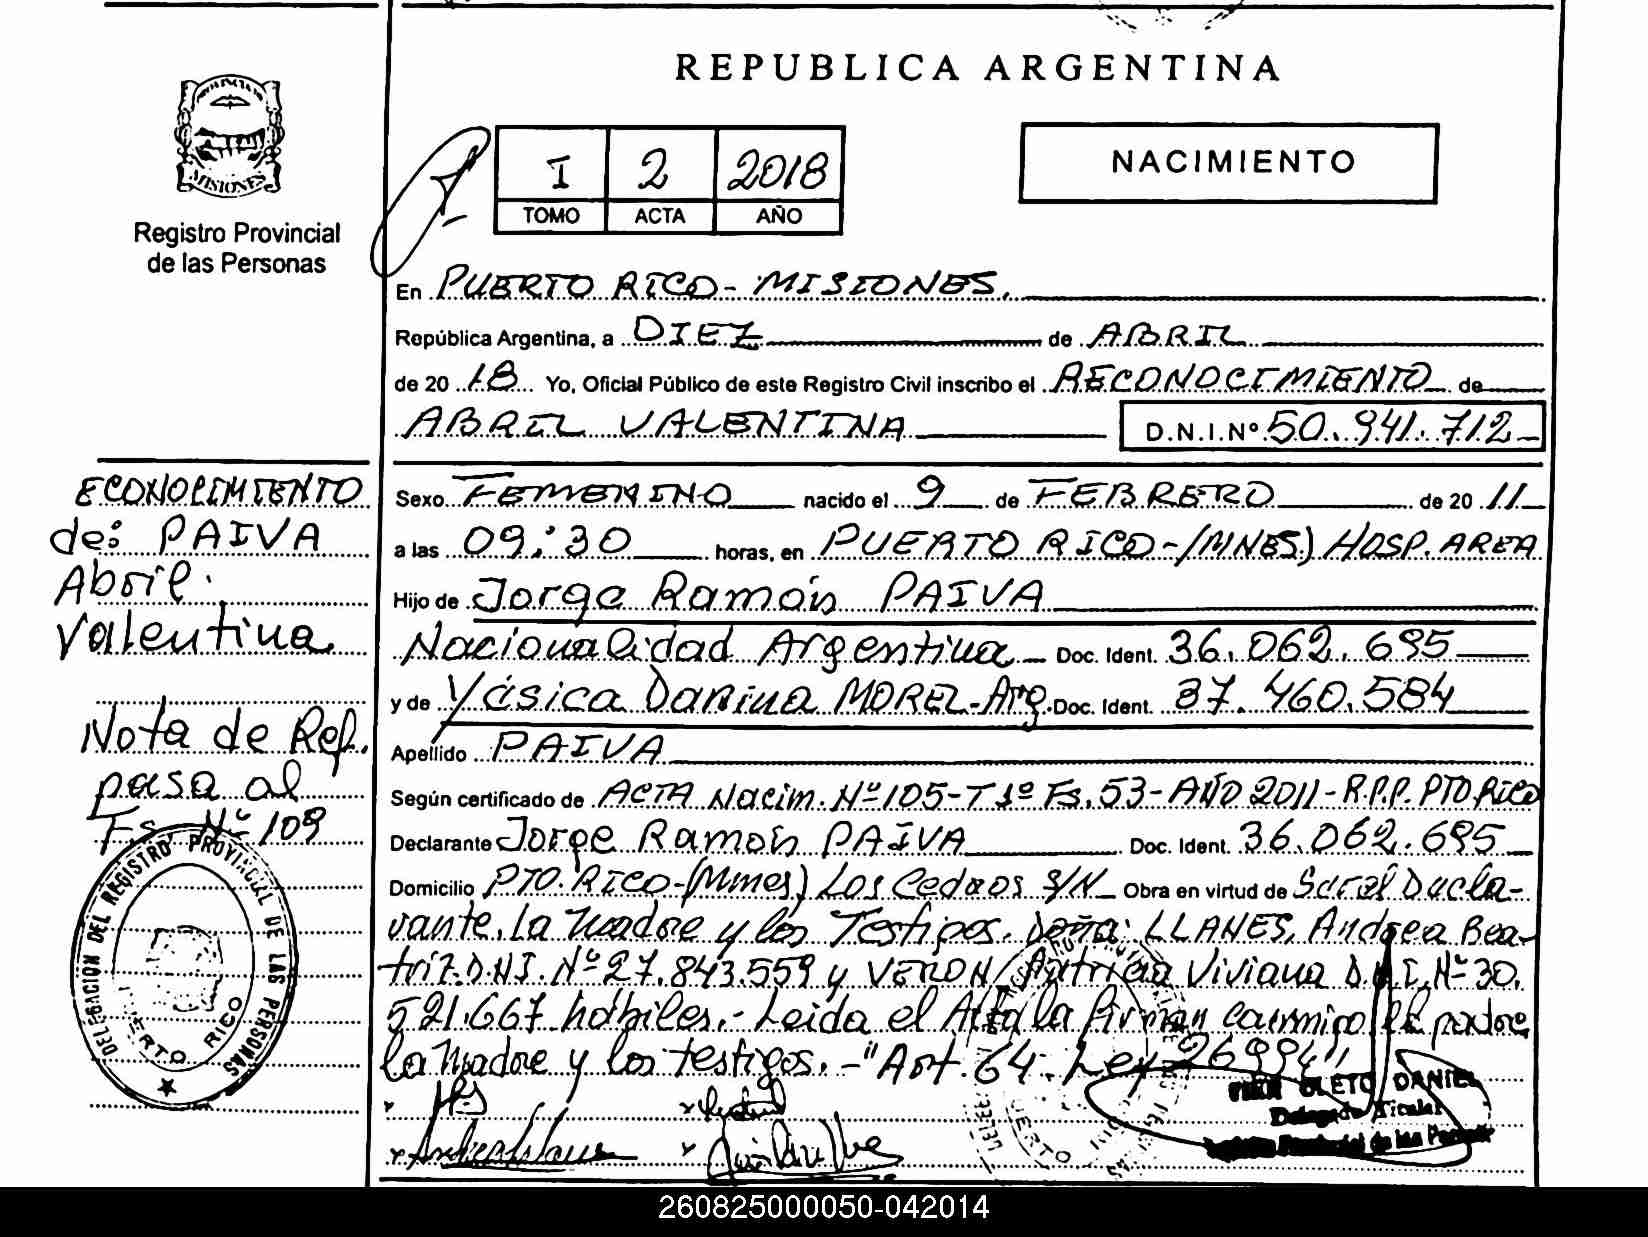 REPUBLICA ARGENTINA
MISIONES
Registro Provincial
de las Personas
I 2 2018
TOMO ACTA AÑO
NACIMIENTO
En PUERTO RICO - MISIONES.
República Argentina, a DIEZ de ABRIL
de 20 18 Yo, Oficial Público de este Registro Civil inscribo el RECONOCIMIENTO de
ABRIL VALENTINA D.N.I.Nº 50.941.712
Sexo FEMENINO nacido el 9 de FEBRERO de 20 11
a las 09:30 horas, en PUERTO RICO-(MNES.) HOSP. AREA
Hijo de Jorge Ramón PAIVA
Nacionalidad Argentina Doc. Ident. 36.062.695
y de Yésica Darina MOREL-Arg. Doc. Ident. 37.460.584
Apellido PAIVA
Según certificado de ACTA Nacim. Nº 105-T1º Fs. 53-AÑO 2011-R.P.P. PTO RICO
Declarante Jorge Ramón PAIVA Doc. Ident. 36.062.695
Domicilio PTO. RICO-(Mnes) Los Cedros S/N Obra en virtud de Ser el Decla-
rante, la madre y los Testigos. Doña: LLANES, Andrea Bea-
triz D.N.I. Nº 27.843.559 y VERON, Patricia Viviana D.N.I. Nº 30.
521.667 hábiles.- Leida el Acta la firman conmigo el padre
la madre y los testigos. - "Art. 64. Ley 26994"
ECONOCIMIENTO
de: PAIVA
Abril
Valentina
Nota de Ref.
pasa al
Fs. Nº 109
DELEGACION DEL REGISTRO PROVINCIAL DE LAS PERSONAS
PUERTO RICO
CLETO DANIEL
Delegado Titular
Registro Provincial de las Personas
260825000050-042014